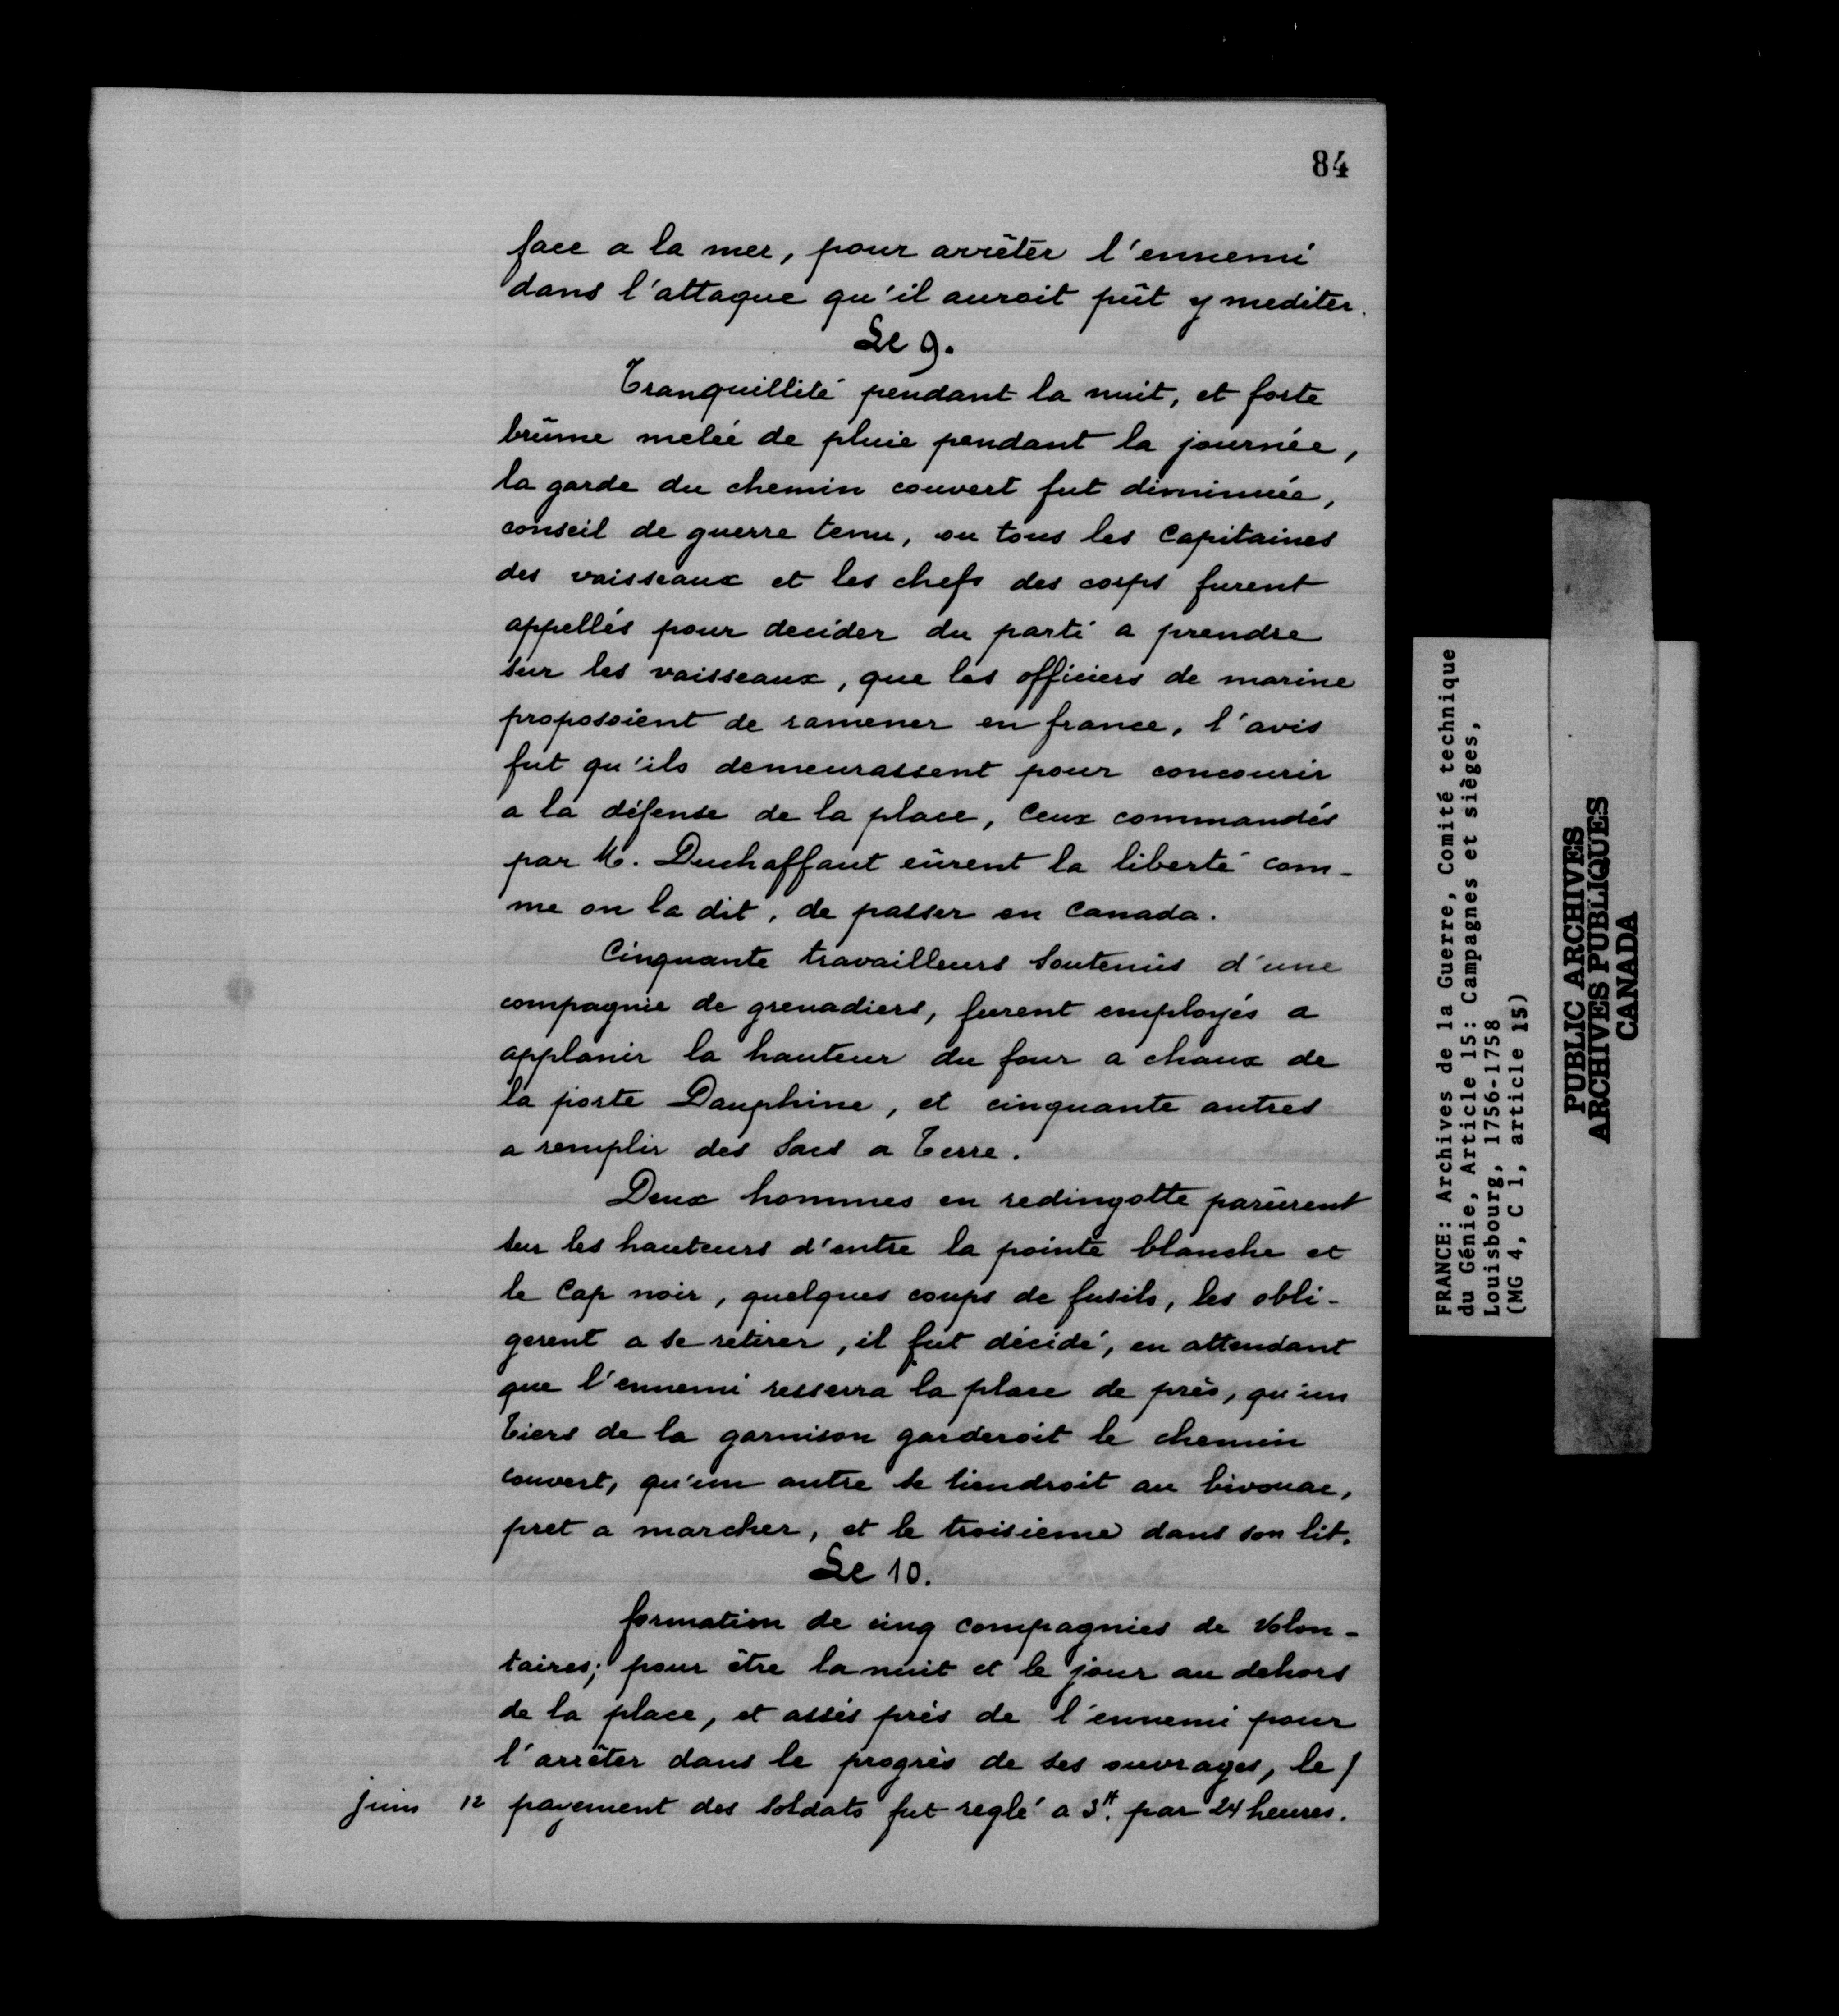 84
face a la mer, pour arrêter l'ennemi
dans l'attaque qu'il auroit pût y mediter.
Le 9.
Tranquillité pendant la nuit, et forte
brûme melée de pluie pendant la journée,
la garde du chemin couvert fut diminuée,
conseil de guerre tenu, ou tous les Capitaines
des vaisseaux et les chefs des corps furent
appellés pour decider du parti a prendre
sur les vaisseaux, que les officiers de marine
proposoient de ramener en france, l'avis
fut qu'ils demeurassent pour concourir
a la défense de la place, Ceux commandés
par M. Duchaffaut eûrent la liberté com-
me on la dit, de passer en Canada.
Cinquante travailleurs Soutenûs d'une
compagnie de grenadiers, furent employés a
applanir la hauteur du four a chaux de
la porte Dauphine, et cinquante autres
a remplir des Sacs a Terre.
Deux hommes en redingotte parûrent
sur les hauteurs d'entre la pointe blanche et
le Cap noir, quelques coups de fusils, les obli-
gerent a se retirer, il fut décidé, en attendant
que l'ennemi resserra la place de près, qu'un
Tiers de la garnison garderoit le chemin
couvert, qu'un autre se tiendroit au bivouac,
pret a marcher, et le troisieme dans son lit.
Le 10.
formation de cinq compagnies de Volon-
taires; pour être la nuit et le jour au dehors
de la place, et assés près de l'ennemi pour
l'arrêter dans le progrès de ses ouvrages, le /
juin 12 payement des Soldats fut reglé a 3ᵗᵗ. par 24 heures.
FRANCE: Archives de la Guerre, Comité technique
du Génie, Article 15: Campagnes et sièges,
Louisbourg, 1756-1758
(MG 4, C 1, article 15)
PUBLIC ARCHIVES
ARCHIVES PUBLIQUES
CANADA